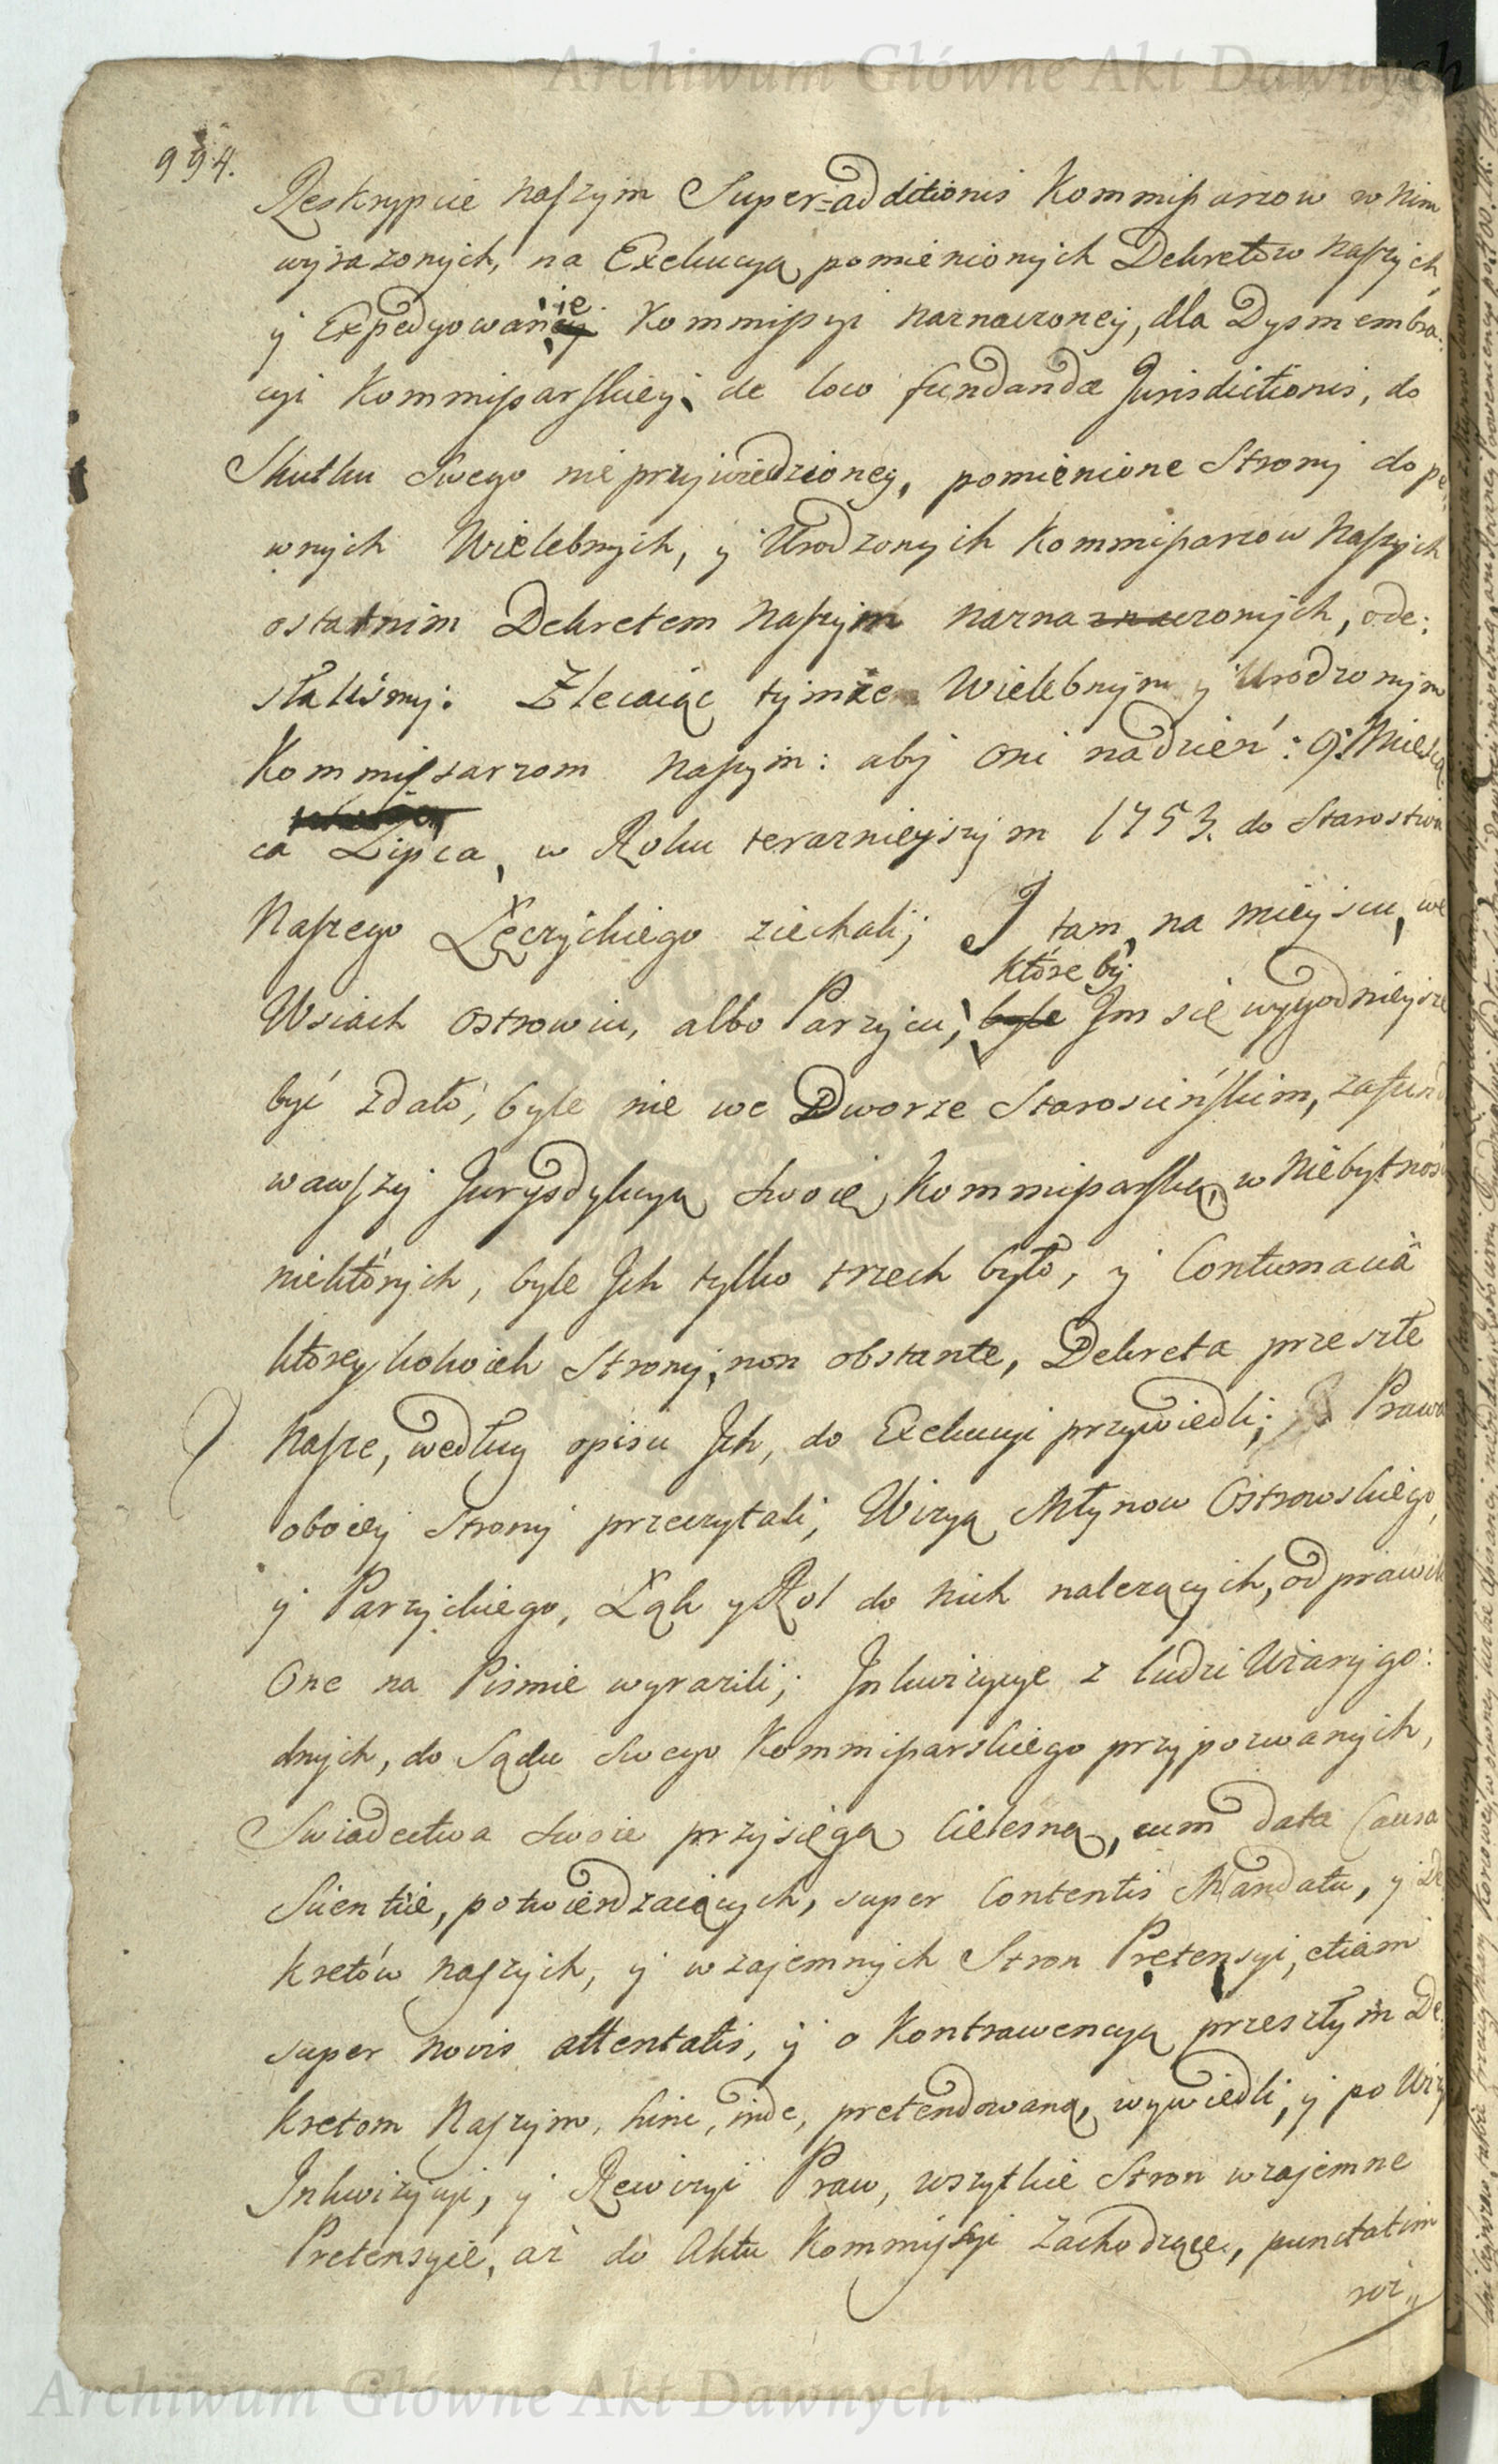 Archiwum Główne Akt Dawnych
994.
Reskrypcie naszym Super=additionis Kommissarzow w nim
wyrazonych, na Exekucyą pomienionych Dekretow naszych,
y Expedyowanie Kommissyi naznaczoney, dla Dysmembra:
cyi Kommissarskiey, de loco fundandæ Jurisdictionis, do
Skutku Swego nie przywiedzioney, pomienione Strony do pe:
wnych Wielebnych, y Urodzonych Kommissarzow Naszych
ostatnim Dekretem naszym nazna znaczonych, ode:
słalismy: Zlecaiąc tymze Wielebnym y Urodzonym
Kommissarzom naszym: aby oni na dzień: 9: Miesią
ca Lipca, w Roku terazniejszym 1753. do Starostwa
Naszego Łęczyckiego ziechali; I tam, na mieyscu, we
któreby
Wsiach Ostrowiu, albo Parzycu, byle Im się wygodnieysze
być zdało, byle nie we Dworze Starościńskim, zafund
wawszy Jurysdykcyą swoię Kommissarską, w Niebytnosc
niektórych, byle Ich tylko trzech było, y Contumaciâ
ktorey kolwiek Strony, non obstante, Dekreta przeszłe
Nasze, według opisu Ich, do Exekucyi przywiedli; Prawa
oboiey Strony przeczytali, Wizyą Młynow Ostrowskiego,
y Parzyckiego, Łąk y Rol do nich nalezących, odprawili
One na Pismie wyrazili; Inkwizycye z ludzi Wiarygo:
dnych, do Sądu Swego Kommissarskiego przypozwanych,
Swiadectwa swoie przysięgą cielesną, cum data Causa
Scientiæ, potwierdzaiących, super Contentis Mandatu, y De
kretów naszych, y wzajemnych Stron Pretensyi, etiam
super novis attentatis, y o Kontrawencyą przeszłym De
kretom Naszym, hinc, inde, pretendowaną, wywiedli, y po Wizy
Inkwizycyi, y Rewizyi Praw, wszytkie Stron wzajemne
Pretensyie, aż do Aktu Kommissyi zachodzące, punctatim
roz„
Archiwum Główne Akt Dawnych